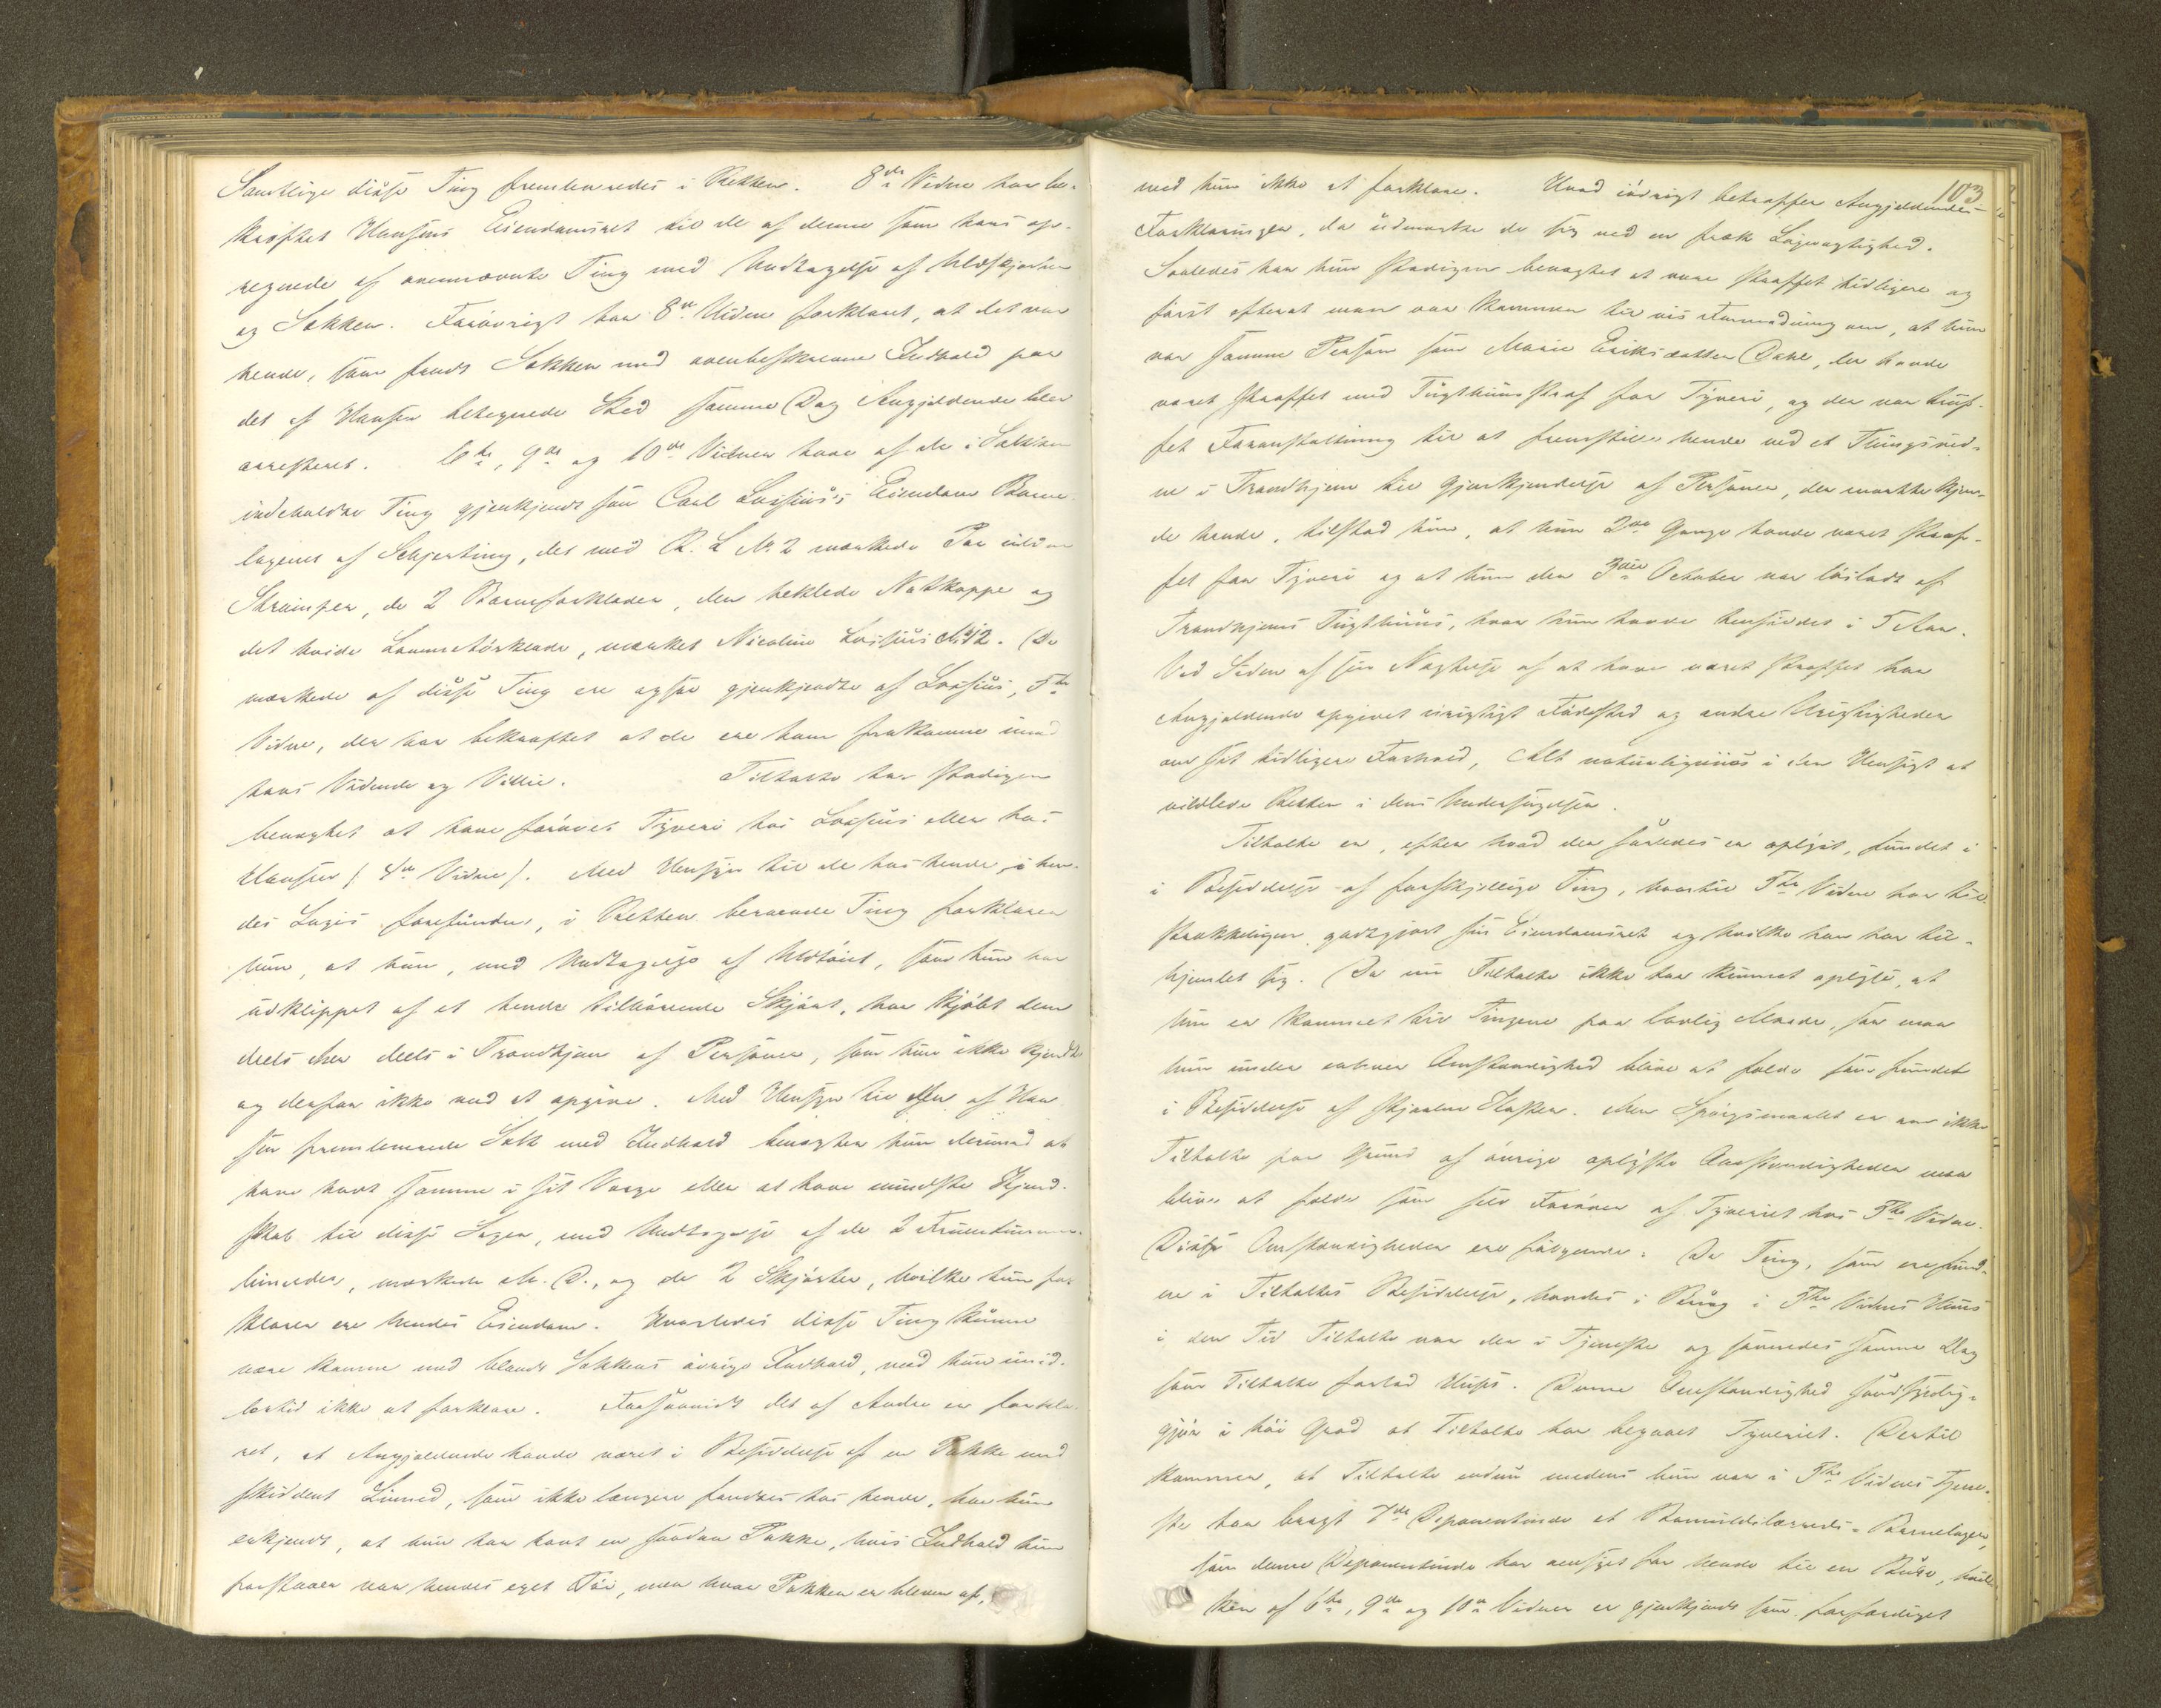 Samtlige disse Ting fremlevredes i Retten. 8de Vidne har be-
kræftet Hansens Eiendomsret til de af denne som hans op-
regnede af ovennævnte Ting med Undtagelse af
og Sækken. Forøvrigt har 8de Vidne forklaret, at det var
hende, som fandt Sækken med ovenbeskrevne Indhold paa
det af Hansen betegnede Sted samme Dag Angjeldende blev
arresteret. 6te, 9de og 10de Vidner have af de i Sækken
indeholdte Ting gjenkjendt som Carl Lossius's Eiendom Barne-
lagenet af Schjerting, det med R. L No. 2 mærkede Par uldne
Strømper, de 2 Barneforklæder, den heklede Natkappe og
det hvide Lommetørklæde, mærket Nicoline Lossius No 12. De
mærkede af disse Ting ere ogsaa gjenkjendte af Lossius, 5te
Vidne, der har bekræftet at de ere ham frakomne imod
hans Vidende og Villie. Tiltalte har stadigen
benægtet at have forøvet Tyveri hos Lossius eller hos
Hansen (4de Vidne). Med Hensyn til de hos hende, i hen-
des Logis forefundne, i Retten beroende Ting forklarer
hun, at hun, med Undtagelse af Uldtøiet, som hun har
udklippet af et hende tilhørende Skjørt, har kjøbt dem
deels her deels i Trondhjem af Personer, som hun ikke kjendte
og derfor ikke veed at opgive. Med Hensyn til den af Han-
sen fremleverede Sæk med Indhold benægter hun derimod at
have havt samme i sit Værge eller at have mindste Kjend-
skab til disse Sager, med Undtagelse af de 2 Fruentimmer-
linneder, mærkede M. D., og de 2 Skjørter, hvilke hun for-
klarer ere hendes Eiendom. Hvorledes disse Ting kunne
være komne med blandt Sækkens øvrige Indhold, veed hun imid-
lertid ikke at forklare. Forsaavidt det af Andre er forkla-
ret, at Angjeldende havde været i Besiddelse af en Pakke med
skiddent Linned, som ikke længere fandtes hos hende, har hun
erkjendt, at hun har havt en saadan Pakke, hvis Indhold hun
forstaaer var hendes eget Tøi, men hvor Pakken er bleven af,
103
ved hun ikke at forklare. Hvad iøvrigt betræffer Angjeldendes
Forklaringer, da udmærke de sig ved en fræk Løgnagtighed.
Saaledes har hun stadigen benægtet at være straffet tidligere og
først efterat man var kommen til vis Formodning om, at hun
var samme Person som Marie Eriksdatter Dahl, der havde
været straffet med Tugthuusstraf for Tyveri, og der var truf-
fet Foranstaltning til at fremstille hende ved et Thingsvid-
ne i Trondhjem til Gjenkjendelse af Personer, der maatte kjen-
de hende, tilstod hun, at hun 2de Gange havde været straf-
fet for Tyveri og at hun den 3die October var løsladt af
Trondhjems Tugthuus, hvor hun havde hensiddet i 5 Aar.
Ved Siden af sin Nægtelse af at have været straffet har
Angjeldende opgivet urigtigt Fødested og andre Urigtigheder
om sit tidligere Forhold, Alt naturligviis i den Hensigt at
vildlede Retten i dens Undersøgelser.
Tiltalte er, efter hvad der saaledes er oplyst, fundet i
i Besiddelse af forskjellige Ting, hvortil 5te Vidne har til-
strækkeligen godtgjort sin Eiendomsret og hvilke han har til-
hjemlet sig. Da nu Tiltalte ikke har kunnet oplyse, at
hun er kommet til Tingene paa lovlig Maade, saa maa
hun under enhver Omstændighed blive at fælde som fundet
i Besiddelse af stjaalne Koster. Men Spørgsmaalet er om ikke
Tiltalte paa Grund af øvrige oplyste Omstændigheder maa
blive at fælde som selv Forøver af Tyveriet hos 5te Vidne.
Disse Omstændigheder ere følgende: De Ting, som ere fund-
ne i Tiltaltes Besiddelse, havdes i Brug i 5te Vidnes Huus
i den Tid Tiltalte var der i Tjeneste og savnedes samme Dag
som Tiltalte forlod Huset. Denne Omstændighed sandsynlig-
gjør i høi Grad at Tiltalte har begaaet Tyveriet. Dertil
kommer, at Tiltalte endnu medens hun var i 5te Vidnes Tjene-
ste har bragt 7de Deponentinde et Bomuldslærreds-Barnelagen,
som denne Deponentinde har omsyet for hende til en Buxe, hvil-
ken af 6te, 9de og 10de Vidner er gjenkjendt som forfærdiget